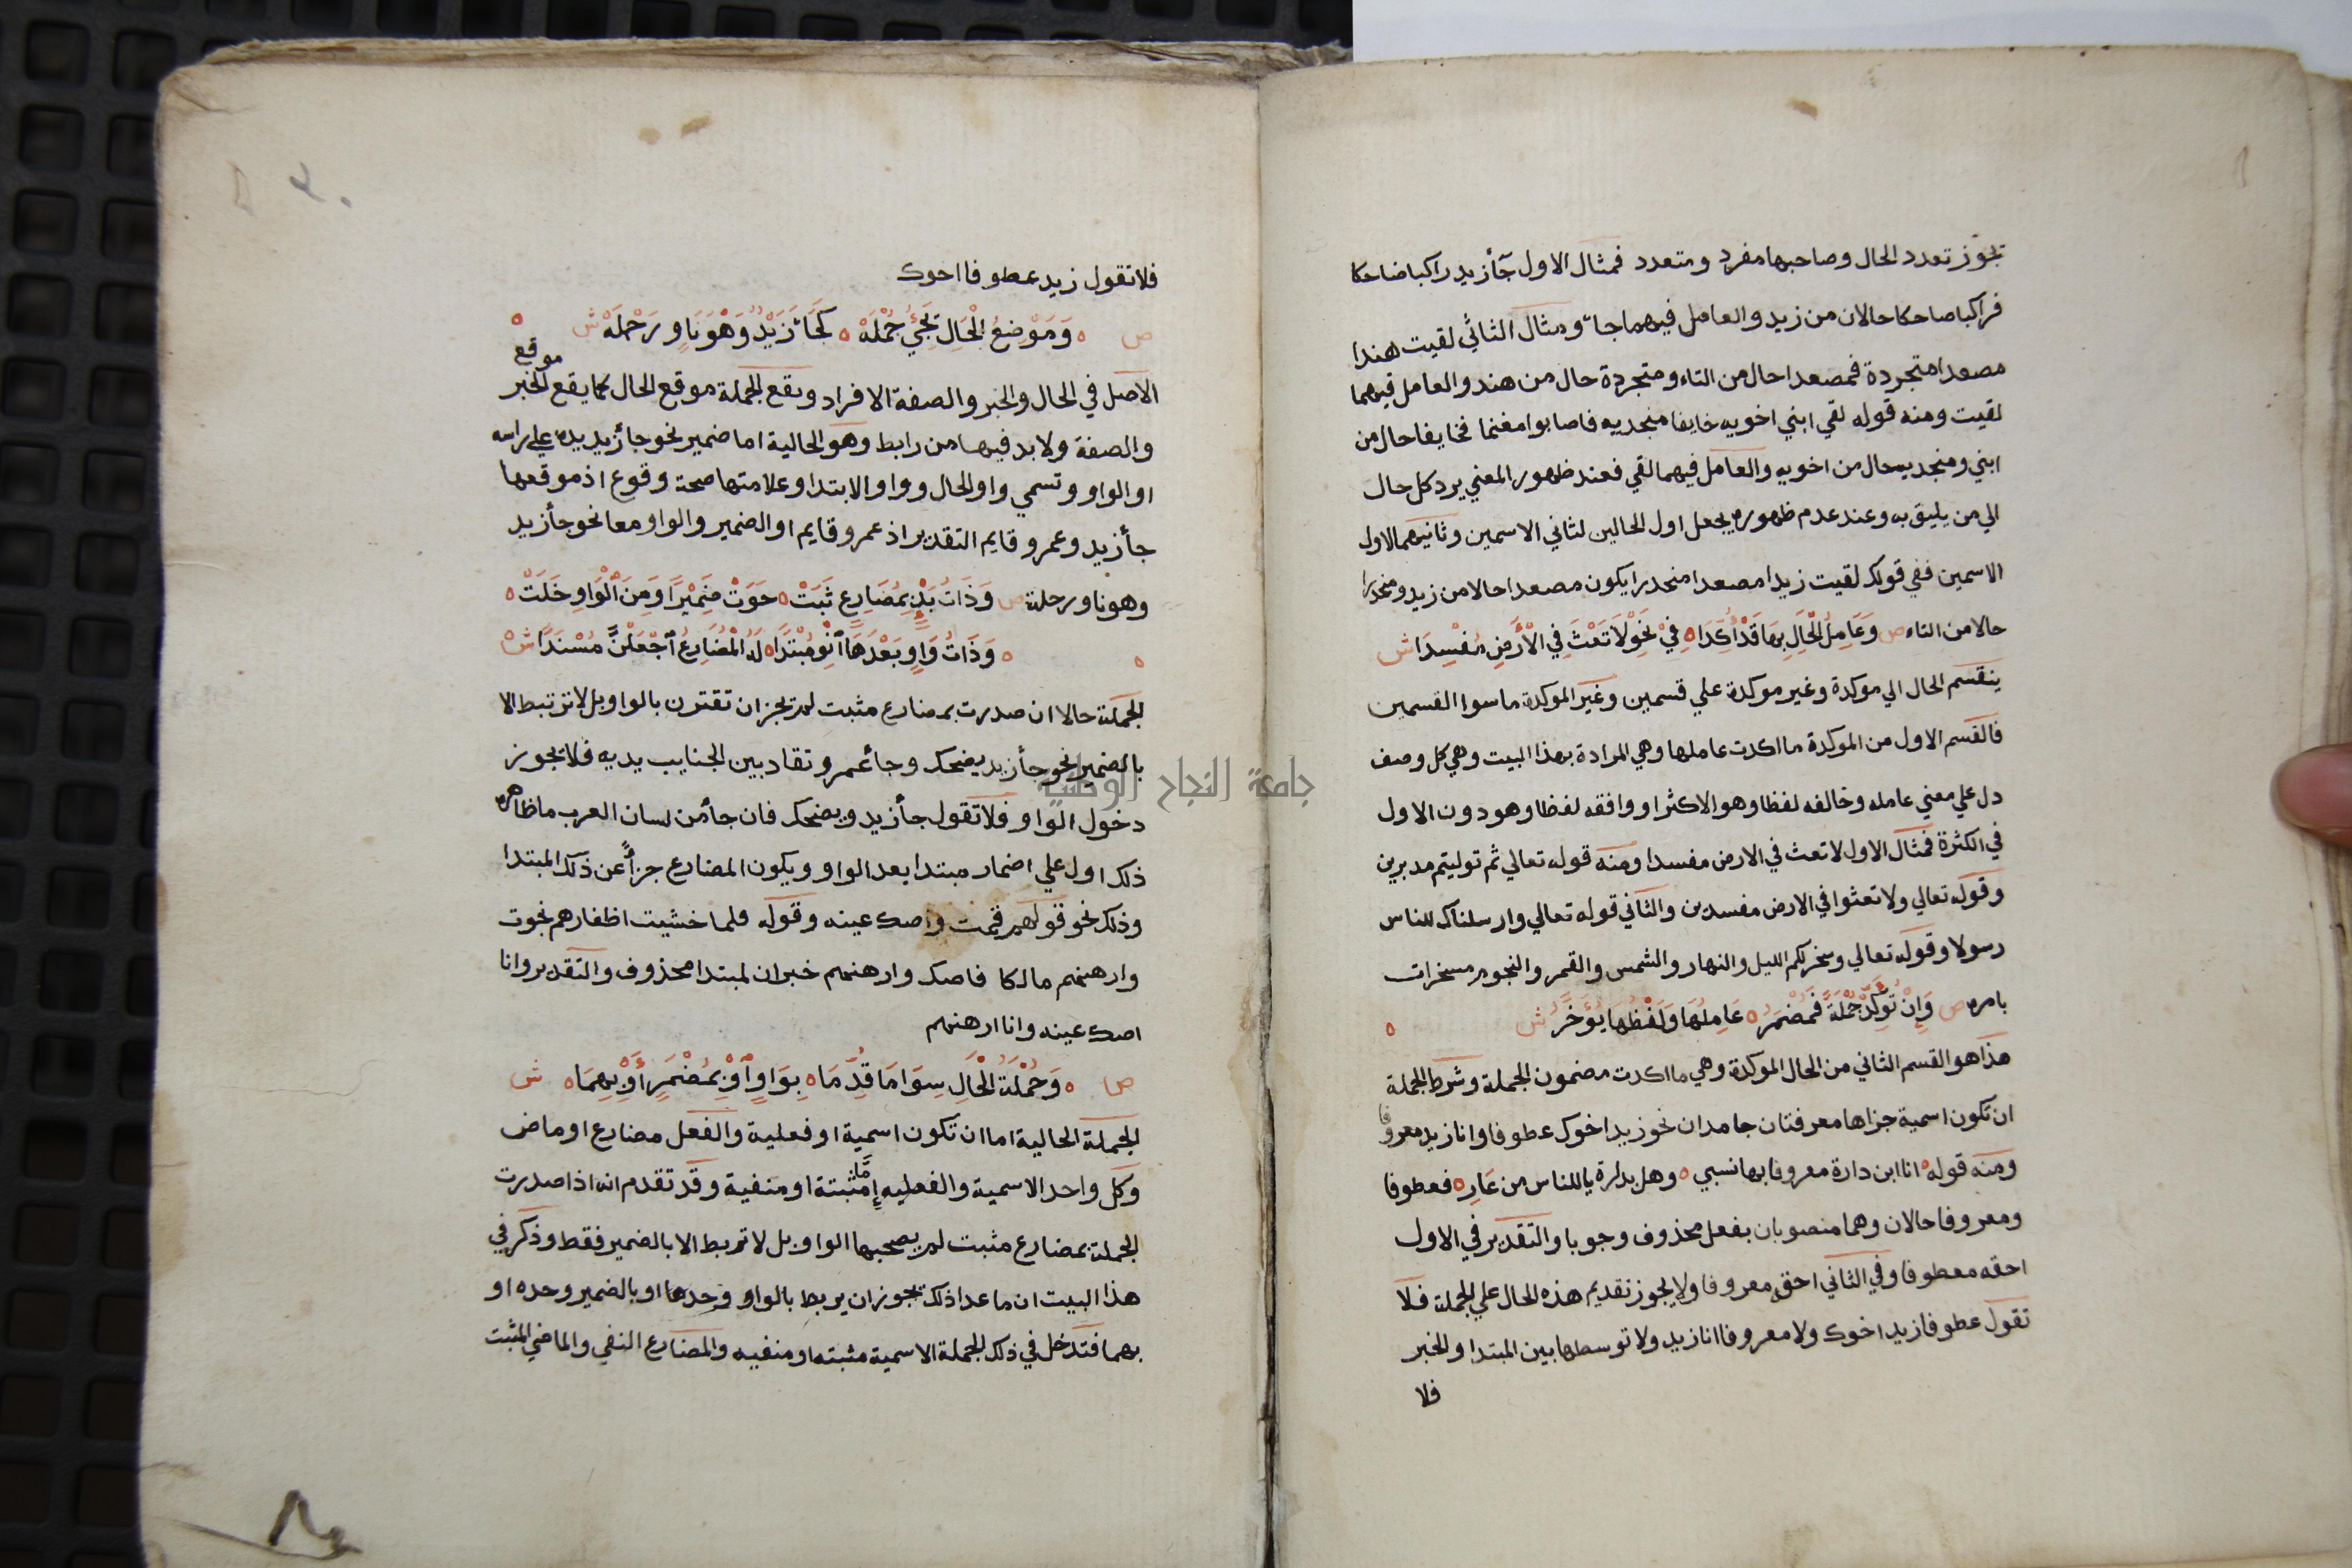 تجوز تعدد الحال وصاحبها مفرد ومتعدد فمثال الاول جآ زيد راكبا ضاحكا
فراكبا ضاحكا حالان من زيد والعامل فيهما جاء ومثال الثاني لقيت هندا
مصعدا متجردة فمصعدا حال من التاء ومتجردة حال من هند والعامل فيهما
لقيت ومنه قوله لقي ابني اخويه خايفا منجديه فاصابوا مغنما فخايفا حال من
ابني ومنجديه حال من اخويه والعامل فيهما لقي فعند ظهور المعني يرد كل حال
الي من يليق به وعند عدم ظهوره يجعل اول الحالين لثاني الاسمين وثانيهما لاول
الاسمين ففي قولك لقيت زيدا مصعدا منحدرا يكون مصعدا حالا من زيد ومنحدرا
حالا من التاء ص وَعَامِلُ الْحَالِ بِهَا قَدْ أُكِّدَا ه فِي نَحْوِ لَا تَعْثَ فِي الْأَرْضِ مُفْسِدَا ش
ينقسم الحال الي موكدة وغير موكدة علي قسمين وغير الموكدة ما سوا القسمين
فالقسم الاول من الموكدة ما اكدت عاملها وهي المرادة بهذا البيت وهي كل وصف
دل علي معني عامله وخالفه لفظا وهو الاكثر او وافقه لفظا وهو دون الاول
في الكثرة فمثال الاول لا تعث في الارض مفسدا ومنه قوله تعالي ثم توليتم مدبرين
وقوله تعالي ولا تعثوا في الارض مفسدين والثاني قوله تعالي وارسلناك للناس
رسولا وقوله تعالي وسخر لكم الليل والنهار والشمس والقمر والنجوم مسخرات
بامره ص وَإِنْ تُؤَكِّدْ جُمْلَةً فَمُضْمَرُ ه عَامِلُهَا وَلَفْظُهَا يُؤَخَّرُ ش ه
هذا هو القسم الثاني من الحال الموكدة وهي ما اكدت مضمون الجملة وشرط الجملة
ان تكون اسمية جزاها معرفتان جامدان نحو زيد اخوك عطوفا وانا زيد معروفا
ومنه قوله ه انا ابن دارة معروفا بها نسبي ه وهل بدارة يا للناس من عَارِ ه فعطوفا
ومعروفا حالان وهما منصوبان بفعل محذوف وجوبا والتقدير في الاول
احقه معطوفا وفي الثاني احق معروفا ولا يجوز تقديم هذه الحال علي الجملة فلا
تقول عطوفا زيد اخوك ولا معروفا انا زيد ولا توسطها بين المبتدا والخبر
فلا
فلا تقول زيد عطوفا اخوك
ص ه وَمَوْضِعُ الْحَالِ تَجِيُ جُمْلَهْ ه كَجَاءَ زَيْدٌ وَهْوَ نَاوٍ رَحْلَهْ ش ه
الاصل في الحال والخبر والصفة الافراد وتقع الجملة موقع الحال كما يقع موقع الخبر
والصفة ولا بد فيها من رابط وهو الحالية اما ضمير نحو جآ زيد يده علي راسه
او الواو وتسمي واو الحال وواو الابتدا وعلامتها صحة وقوع اذ موقعها
جآ زيد وعمرو قايم التقدير اذ عمرو قايم او الضمير والواو معا نحو جآ زيد
وهو ناو رحلة ص وَذَاتُ بَدْءٍ بِمُضَارِعٍ ثَبَتْ ه حَوَتْ ضَمِيْرًا وَمِنَ الْوَاوِ خَلَتْ ه
ه ه وَذَاتُ وَاوٍ بَعْدَهَا انْوِ مُبْتَدَا ه لَهُ الْمُضَارِعُ اجْعَلَنَّ مُسْنَدَا ش
الجملة حالا ان صدرت بمضارع مثبت لم تجز ان تقترن بالواو بل لا ترتبط الا
بالضمير نحو جآ زيد يضحك وجآ عمرو تقاد بين الجنايب يديه فلا تجوز
دخول الواو فلا تقول جآ زيد ويضحك فان جآ من لسان العرب ما ظاهره
ذلك اول علي اضمار مبتدا بعد الواو ويكون المضارع جزأً عن ذلك المبتدا
وذلك نحو قولهم قمت واصك عينه وقوله فلما خشيت اظفارهم نجوت
وارهنهم مالكا فاصك وارهنهم خبران لمبتدا محذوف والتقدير وانا
اصك عينه وانا ارهنهم
ص ه وَجُمْلَةُ الْحَالِ سِوَا مَا قُدِّمَا ه بِوَاوٍ أَوْ بِمُضْمَرٍ أَوْ بِهِمَا ه ش
الجملة الحالية اما ان تكون اسمية او فعلية والفعل مضارع او ماض
وكل واحد الاسمية والفعليه إمّا مثبتة او منفية وقد تقدم انه اذا صدرت
الجملة بمضارع مثبت لم يصحبها الواو بل لا تربط الا بالضمير فقط وذكر في
هذا البيت ان ما عدا ذلك تجوز ان يربط بالواو وحدها او بالضمير وحده او
بهما فتدخل في ذلك الجملة الاسمية مثبته او منفيه والمضارع النفي والماضي المثبت
جامعة النجاح الوطنية